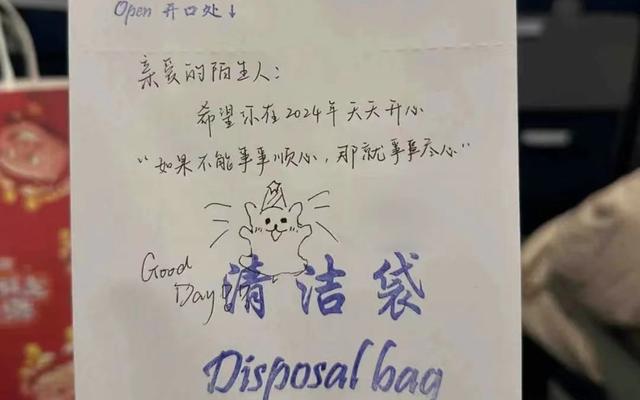 Open 开口处↓
亲爱的陌生人：
希望你在2024年天天开心
“如果不能事事顺心，那就事事尽心”
Good
Day!
清洁袋
Disposal bag